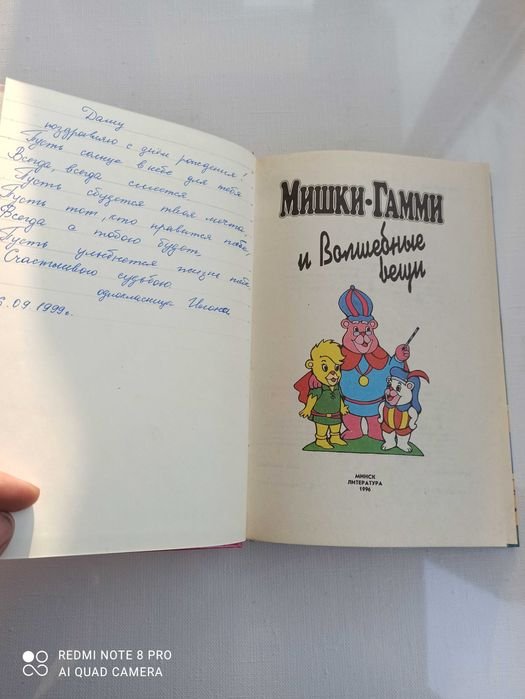 Дашу
поздравляю с днём рождения!
Пусть солнце в небе для тебя
Всегда, всегда смеется
Пусть сбудется твоя мечта
Пусть тот, кто нравится тебе,
Всегда с тобою будет,
Пусть улыбнется жизнь тебе
Счастливою судьбою.
одноклассница
.09.1999г.
МИШКИ-ГАММИ
и ВОЛШЕБНЫЕ
вещи
МИНСК
ЛИТЕРАТУРА
1996
REDMI NOTE 8 PRO
AI QUAD CAMERA